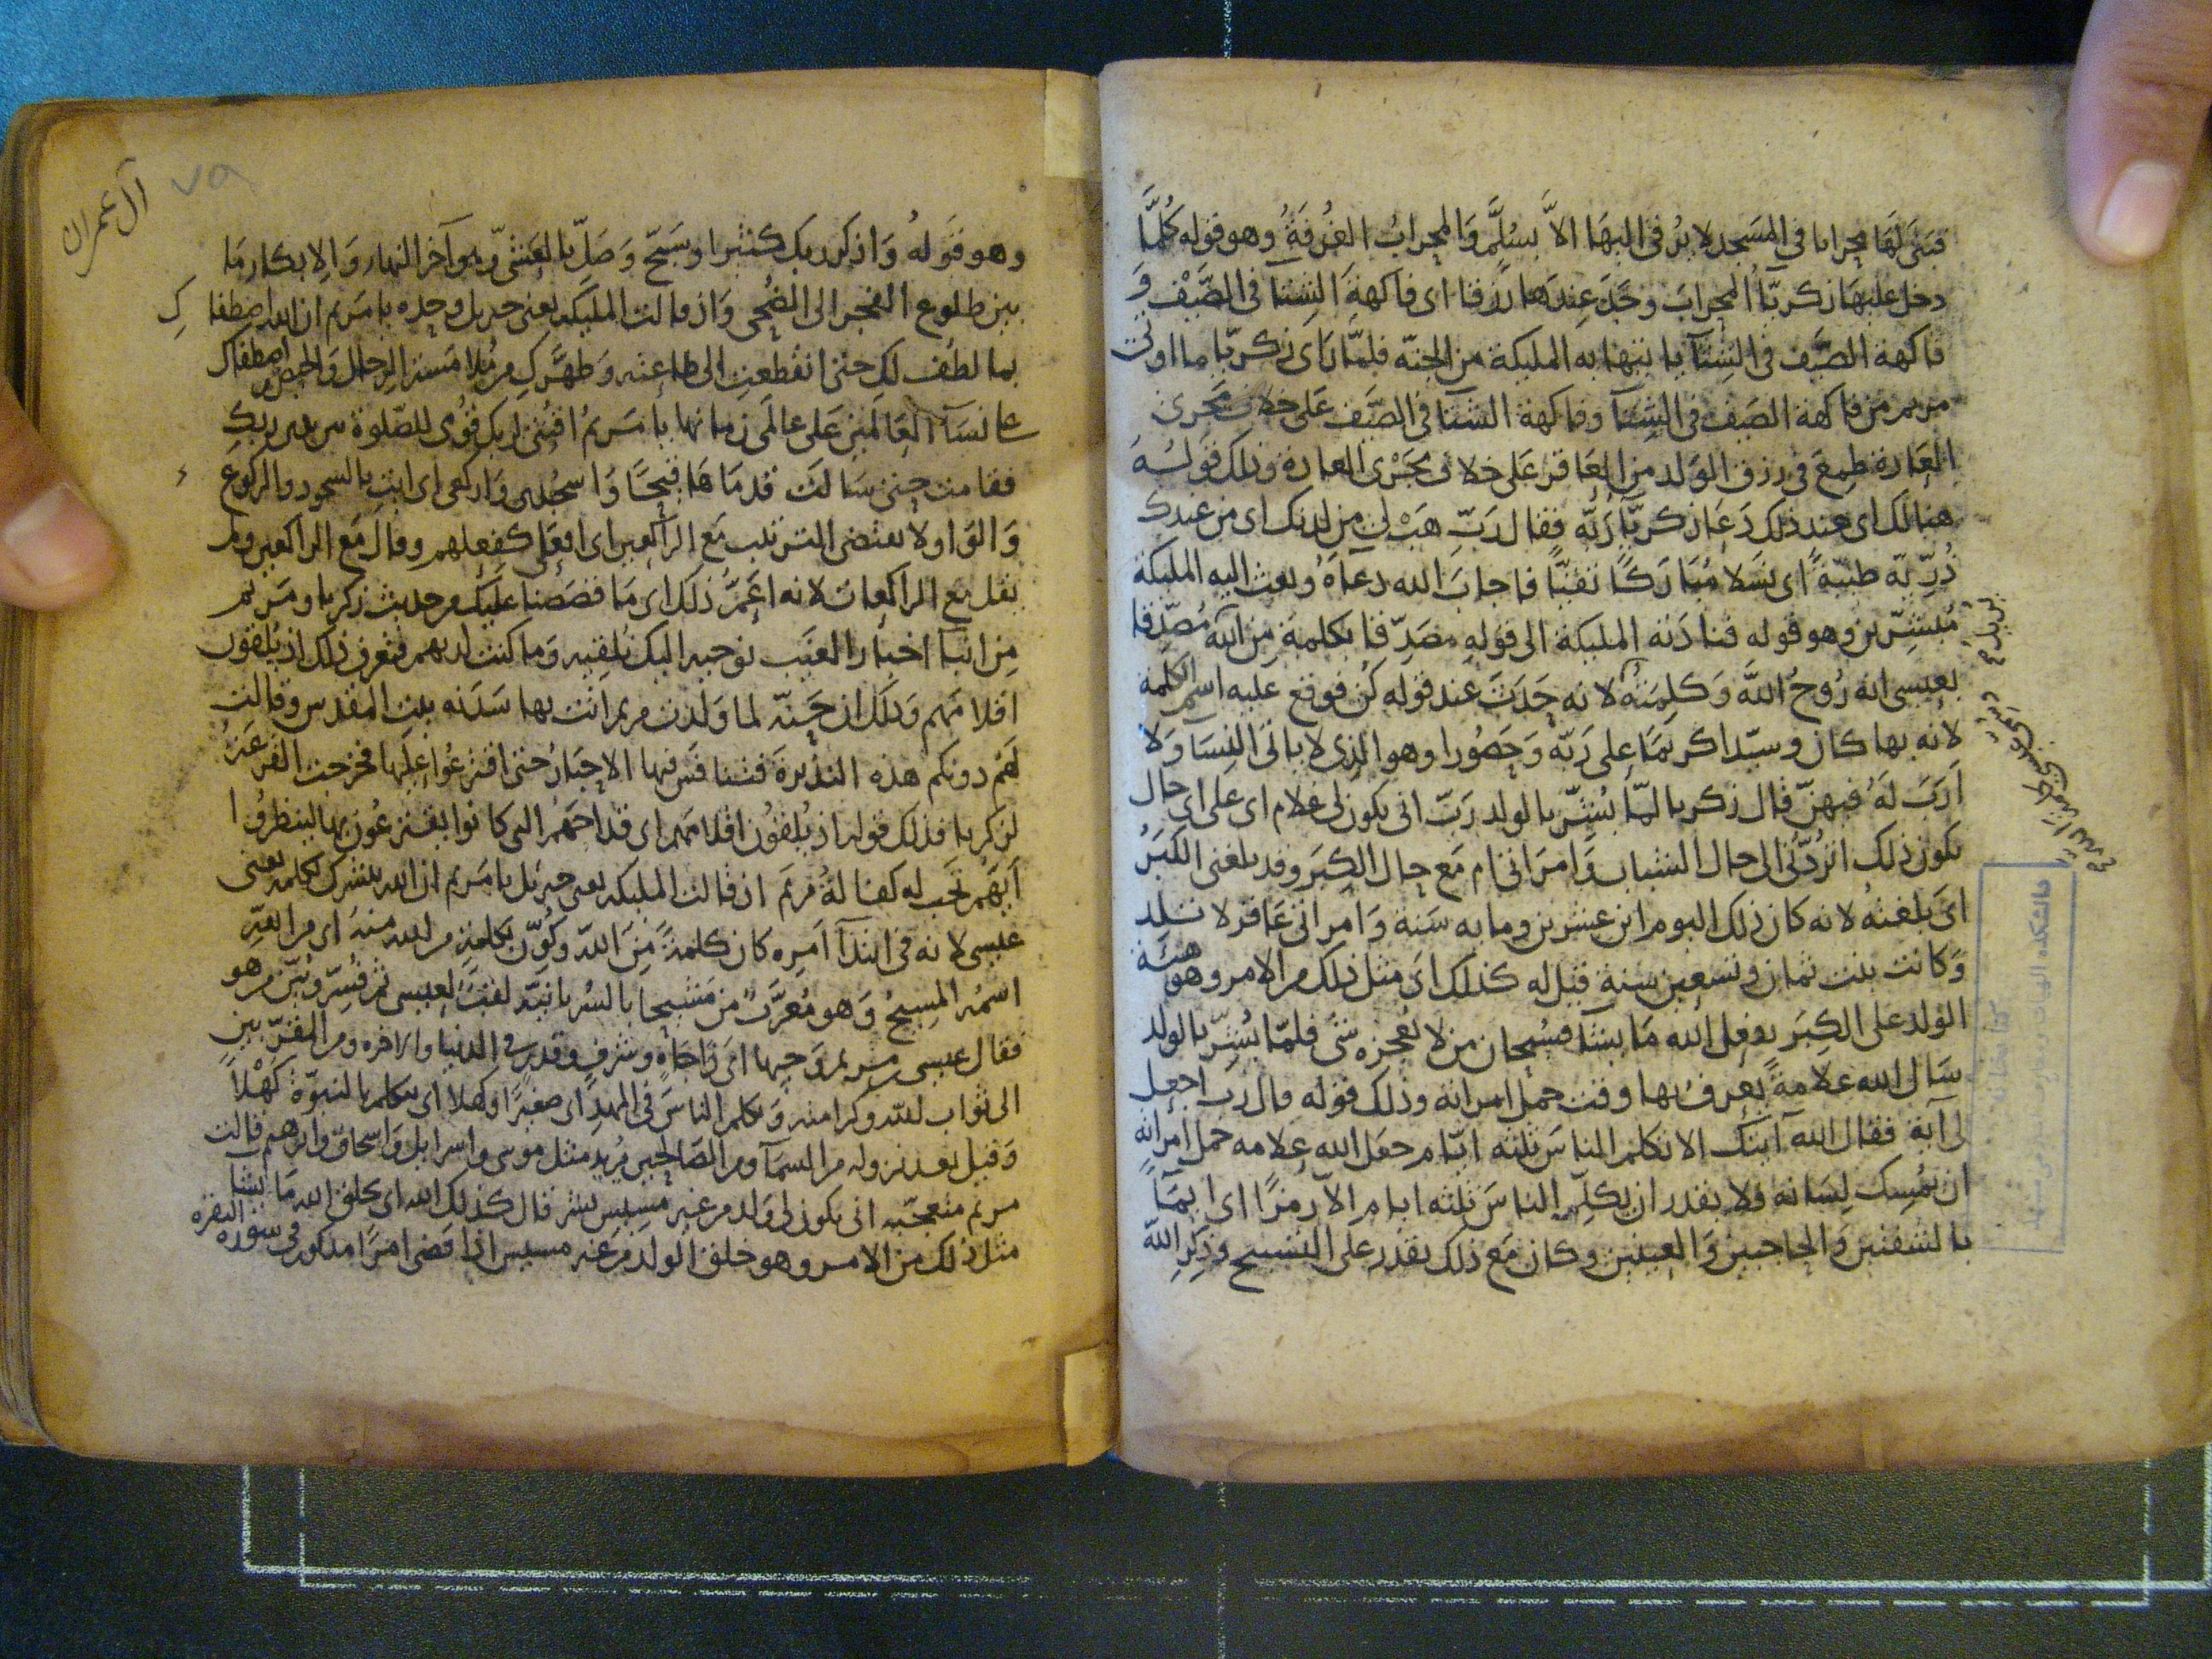 فبنى لها محرابا في المسجد لا يرتقى اليها الاّ بسُلّم وَالمحرابُ الغُرفَةُ وهو قوله كُلَّما
دخل عليها زكريّا المحرابَ وجَدَ عِندَها رزقا اى فاكهةَ الشتا في الصَّيْف وَ
فاكهة الصَّيف في الشتآ يا تيها به المليكة من الجنّه فلمّا راَى زكريّا ما اوتيت
مريم من فاكهة الصَيف في الشتآ وفاكهة الشتا في الصَّيف عَلى خلاف مَجرى
العَادة طمعَ في رزق الوَلد من العَاقر عَلى خلاف مَجْرَى العادة وذلك قولُهُ
هنالك اى عند ذلك دَعَا زكريّآ رَبّه فقال رَبِّ هَبْ لى من لدنك اى من عندك
ذُرّيّة طيّبةً اى نَسَلا مُبَارَكًا تقيّا فاجابَ الله دعآه وبعث اليه المليكة
مُبشّرين وهو قوله فنادَته المليكة الى قوله مصَدّقا بكلمة من الله مُصدّقا
بعيسى انه رُوحُ اللهِ وَكلمَتُه لانه حَدَثَ عند قوله كُن فوقع عليه اسم الكلمة
لانه بها كان وسيّدا كريما على رَبّه وَحَصُورا وهو الذى لا ياتى النسَا وَلا
اَرَبَ لَهُ فيهنّ قال زكريا لمّا بُشّر بالولد رَبّ انى يكون لى غلام اى على اى حال
يكون ذلك اتردّنى الى حال الشباب وَامرَاتى ام مَع حال الكِبَر وقد بلغنى الكبَرُ
اىَ بلغتُه لانه كان ذلك اليوم ابن عشرين ومايه سَنة وَامراتى عَاقر لا تلد
وَكانت بنت ثمان وتسعين سنة قيل له كذلك اىَ مثل ذلك من الامر وهو هبَة
الوَلد على الكِبَر يفعل الله مَا يشآ فسُبحان من لا يُعجزه شى فلمّا بُشّر بالولد
سَال الله علامةً يَعرفُ بها وقت حمل امراته وذلك قوله قال رب اجعل
لى آية فقال الله آيتك الا تكلم الناسَ ثلثه ايّام جعَل الله علامه حمل امراته
ان يُمسك لِسَانه فلا يقدر ان يكلّم الناسَ ثلثه ايام الا رمزًا اى ايمآءً
بالشفتين وَالحاجبين وَالعينين وكان مَع ذلك يقدر على التسبيح وَذكر اللهِ
آل عمران
٧٩
وهو قوله وَاذكر ربك كثيرا وسَبّح وَصَلّ بالعَشىّ وهو آخر النهار وَالابكار مَا
بين طلوع الفجر الى الضحى وَاذ قالت المليكه يعنى جبريل وحده يا مريم ان الله اصطفا كِ
بما لطف لك حتى انقطعتِ الى طاعته وَطهّرك من ملامَسة الرجال والحيض واصطفاك
على نسآ العَالمين عَلى عالمى زمانها يا مَريمُ اقنُتى لربك قومى للصّلوة بين يدى ربكِ
فقامت حتى سَالَت قدمَاها قيحًا وَاسجدى وَاركعى اى ايتى بالسجود والركوع
وَالوَاو لا يقتضى الترتيب مَع الراكعين اى افعلى كفعلهم وقال مَع الراكعين ولم
يقل مع الراكعات لانه اعَمُّ ذلك اى مَا قصَصنا عليك من حديث زكريا ومَريم
من انبآ اخبار الغَيب نوحيه اليك نلقيه وَما كنت لديهم فتعرف ذلك اذ يُلقون
اقلامَهم وَذلك ان حَنّه لما وَلدت مريم اتت بها سَدَنه بيت المقدس وقالت
لهم دونكم هذه النذيرة فتنافَس فيها الاحبَارُ حتى اقترعُوا عليها فخرجت القرعَةُ
لزكريا فذلك قوله اذ يلقُون اقلامهم اى قداحَهُم التى كانوا يقترعُون بها لينظرُوا
اَيّهم تجب له كفالةُ مريَم اذ قالت المليكه يعنى جبريل يا مَريم ان الله يبشرك بكلمه يعنى
عيسى لانه فى ابتدآ اَمره كان كلمةً مِنَ اللهِ وكُوّن بكلمةٍ من الله منه اى من الله
اسمُه المسيحُ وَهو مُعرَّبٌ من مَشيحا بالسُريانيّه لقبٌ لعيسى ثم فسّر وبُيّن من هو
فقال عيسى بن مريم وَجيها اى ذا جَاهٍ وشَرفٍ وقدرٍ فى الدنيا والاخره ومن المقرّبين
الى ثواب الله وكرامته وَيكلم الناسَ فى المهدِ اى صغيرًا وكهلا اى يتكلم بالنبوّة كهْلاً
وَقيل بعد نزوله من السمآ ومن الصَالحين يُريد مثل موسى واسرايل وَاسحاق وابرهيم قالت
مريم متعجّبه انى يكون لى وَلد من غير مسيس بشر قال كذلك الله اى يخلق الله مَا يشا
مثل ذلك من الامر وهو خلق الولد من غير مسيس اذا قضى امرًا مذكور فى سوره البقره